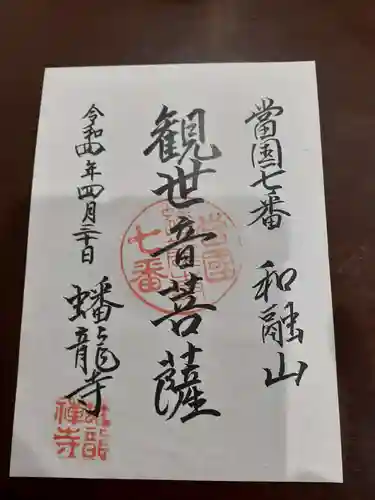 當国七番　和融山
観世音菩薩
令和四年四月三十日
蟠龍寺
當國
七番